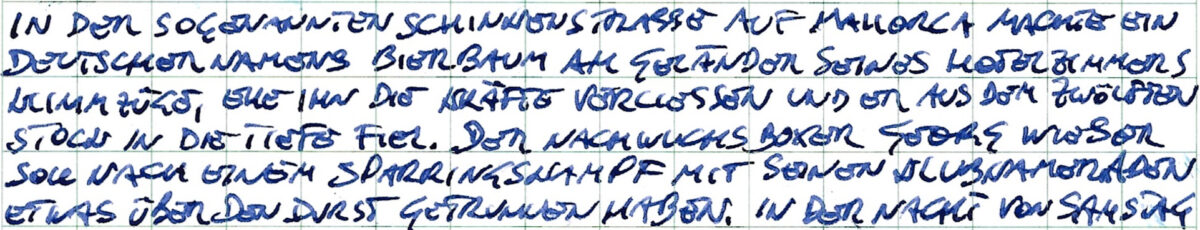 IN DER SOGENANNTEN SCHINKENSTRASSE AUF MALLORCA MACHTE EIN
DEUTSCHER NAMENS BIERBAUM AM GELÄNDER SEINES HOTELZIMMERS
KLIMMZÜGE, EHE IHN DIE KRÄFTE VERLIESSEN UND ER AUS DEM ZWÖLFTEN
STOCK IN DIE TIEFE FIEL. DER NACHWUCHSBOXER GEORG WIESER
SOLL NACH EINEM SPARRINGSKAMPF MIT SEINEN KLUBKAMERADEN
ETWAS ÜBER DEN DURST GETRUNKEN HABEN. IN DER NACHT VON SAMSTAG